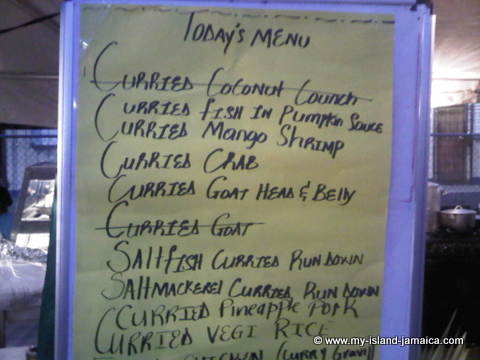 TODAY'S MENU
CURRIED COCONUT CONNCH
CURRIED FISH IN PUMPKIN SAUCE
CURRIED MANGO SHRIMP
CURRIED CRAB
CURRIED GOAT HEAD & BELLY
CURRIED GOAT
SALTFISH CURRIED RUN DOWN
SALTMACKEREL CURRIED RUN DOWN
CCURRIED PINEAPPLE PORK
CURRIED VEGI RICE
CHICKEN (CURRY GRAVY
© www.my-island-jamaica.com